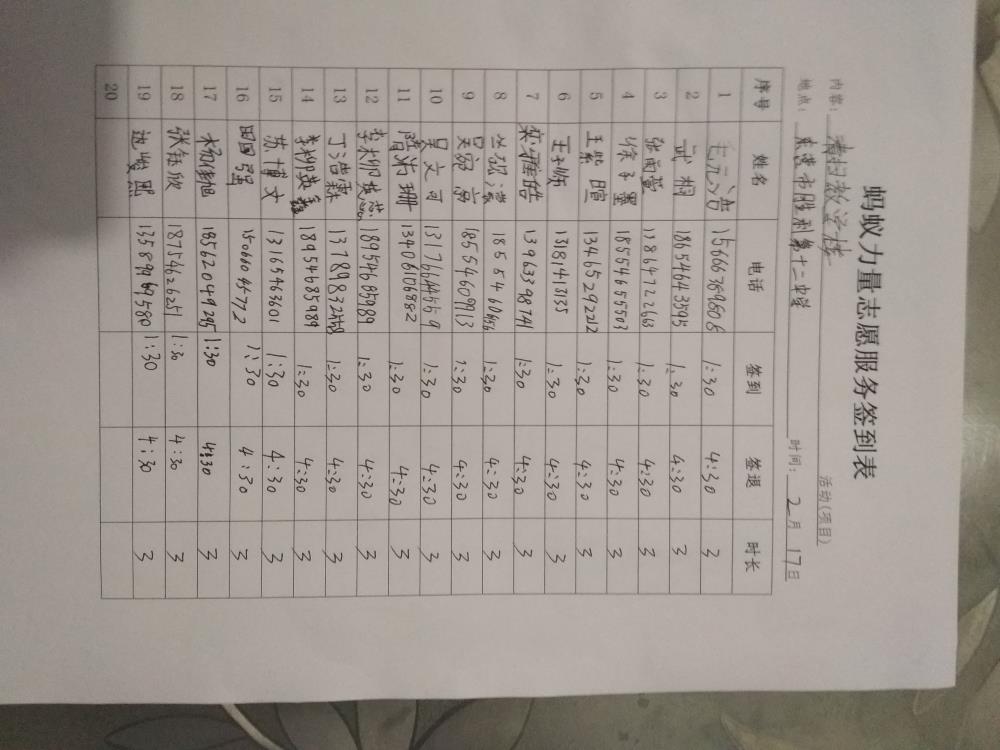 蚂蚁力量志愿服务签到表
内容: 清扫教学楼 活动(项目)
地点: 东营市胜利第十二中学 时间: 2月17日
序号 姓名 电话 签到 签退 时长
1 15666369808 1:30 4:30 3
2 武桐 18654643595 1:30 4:30 3
3 张雨萱 13864722663 1:30 4:30 3
4 徐子墨 18554655503 1:30 4:30 3
5 王紫暄 13465292212 1:30 4:30 3
6 13181413135 1:30 4:30 3
7 栾雅皓 13963398741 1:30 4:30 3
8 1:30 4:30 3
9 18554609913 1:30 4:30 3
10 吴文可 1:30 4:30 3
11 13406106882 1:30 4:30 3
12 李柳英芯 18954685989 1:30 4:30 3
13 丁浩霖 1:30 4:30 3
14 李柳英鑫 18954685989 1:30 4:30 3
15 苏博文 13165463601 1:30 4:30 3
16 田国强 1:30 4:30 3
17 18562049295 1:30 4:30 3
18 张钰欣 18754626251 1:30 4:30 3
19 边峻熙 13589969580 1:30 4:30 3
20